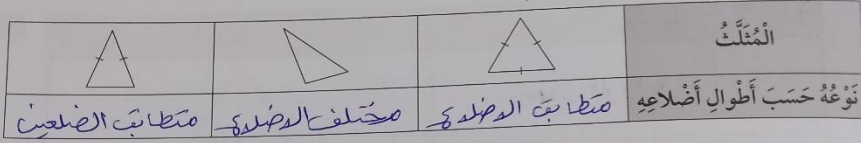 الْمُثَلَّثُ
نَوْعُهُ حَسَبَ أَطْوالِ أَضْلاعِهِ متطابق الاضلاع مختلف الاضلاع متطابق الضلعين